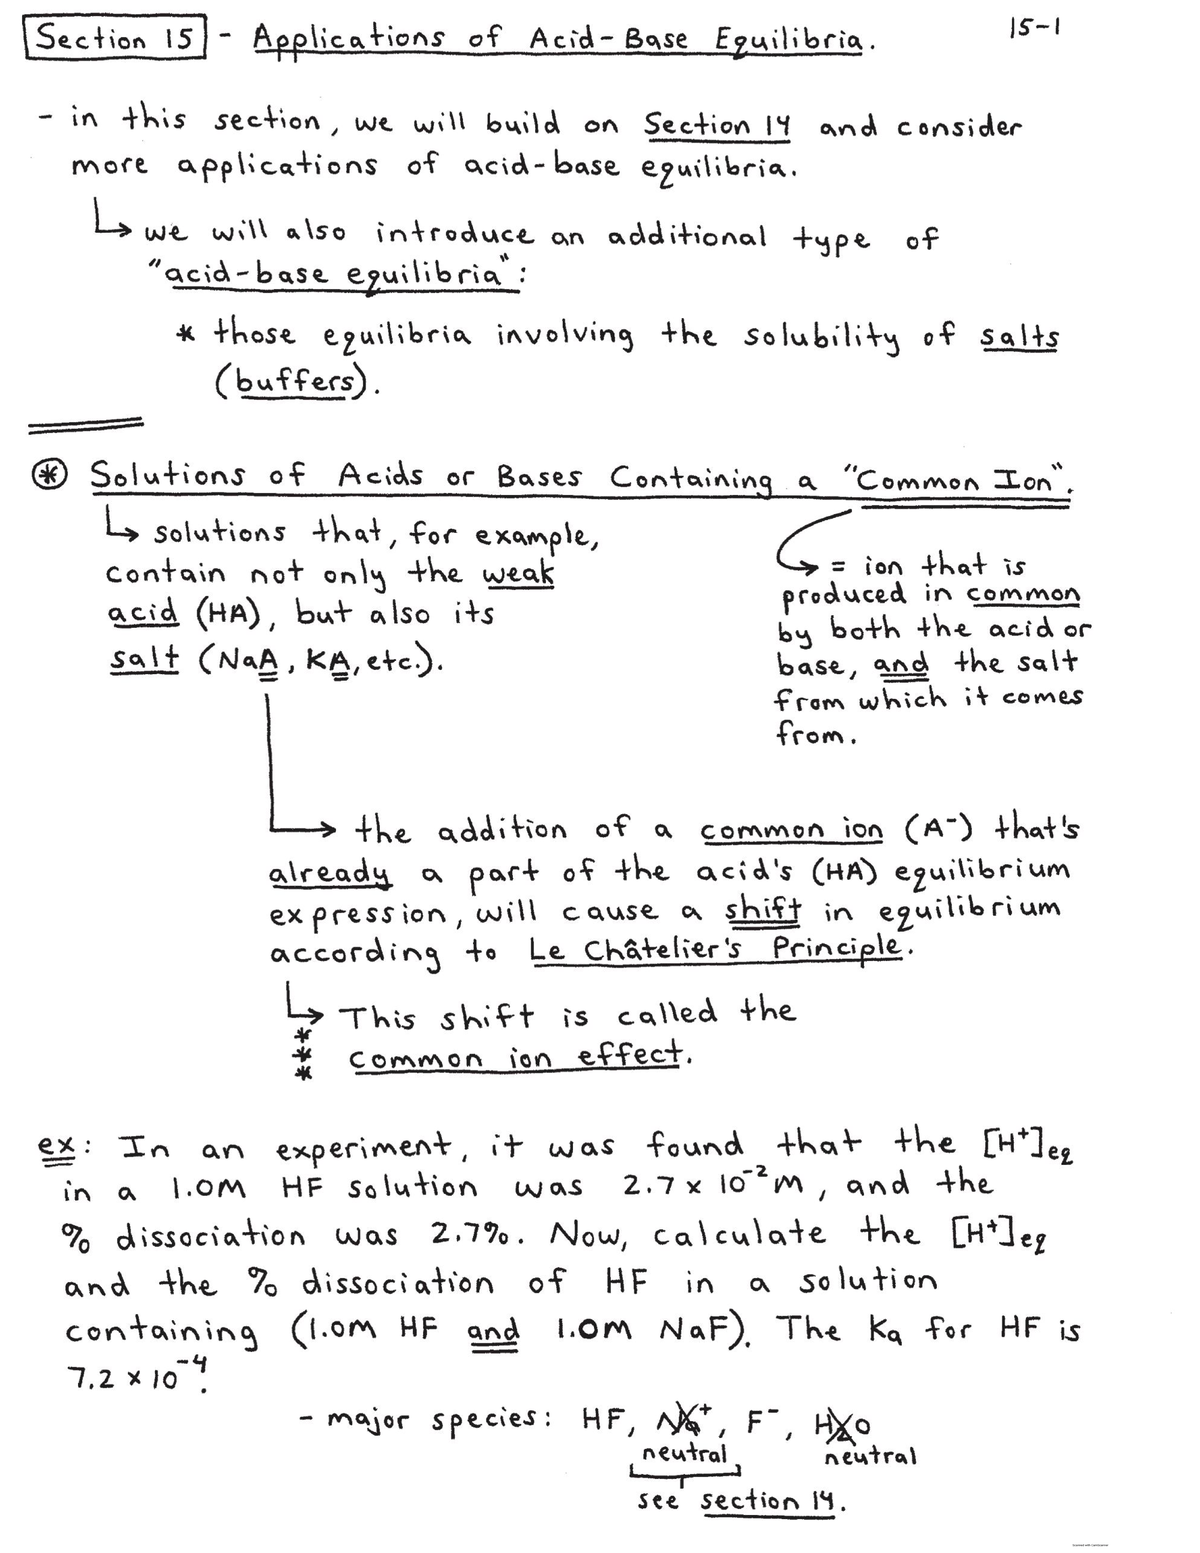 Section 15 - Applications of Acid-Base Equilibria. 15-1
- in this section, we will build on Section 14 and consider
more applications of acid-base equilibria.
↳ we will also introduce an additional type of
"acid-base equilibria":
* those equilibria involving the solubility of salts
(buffers).
⊛ Solutions of Acids or Bases Containing a "Common Ion".
↳ solutions that, for example,
contain not only the weak
acid (HA), but also its
salt (NaA, KA, etc.).
↳ = ion that is
produced in common
by both the acid or
base, and the salt
from which it comes
from.
→ the addition of a common ion (A⁻) that's
already a part of the acid's (HA) equilibrium
expression, will cause a shift in equilibrium
according to Le Châtelier's Principle.
↳ This shift is called the
*** common ion effect.
ex: In an experiment, it was found that the [H⁺]eq
in a 1.0M HF solution was 2.7 x 10⁻² M, and the
% dissociation was 2.7%. Now, calculate the [H⁺]eq
and the % dissociation of HF in a solution
containing (1.0M HF and 1.0M NaF). The Ka for HF is
7.2 x 10⁻⁴.
- major species: HF, Na⁺, F⁻, H₂O
neutral neutral
see section 14.